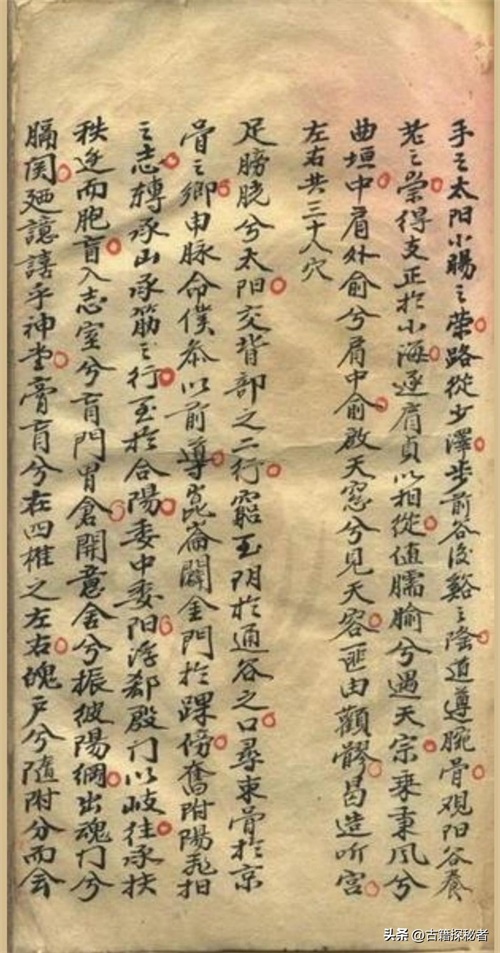 手之太阳小腸之荣路從少澤步前谷後谿之隆道遵腕骨观阳谷養
老之崇得支正於小海逐肩貞以相從值臑腧兮遇天宗乘秉风兮
曲垣中肩外俞兮肩中俞啟天窓兮見天容匪由顴髎曷造听宫
左右共三十八穴
足膀胱兮太阳交背部之二行窮至阴於通谷之口尋束骨於京
骨之鄉申脉命僕参以前導崑崙闢金門於踝傍奮附陽飛扬
之志轉承山承筋之行至於合陽委中委阳浮郄殷门以岐往承扶
秩边而胞肓入志室兮肓門胃倉開意舍兮振彼陽綱出魂门兮
膈関廼譩譆乎神堂膏肓兮在四椎之左右魄戸兮隨附分而会
头条 @古籍探秘者